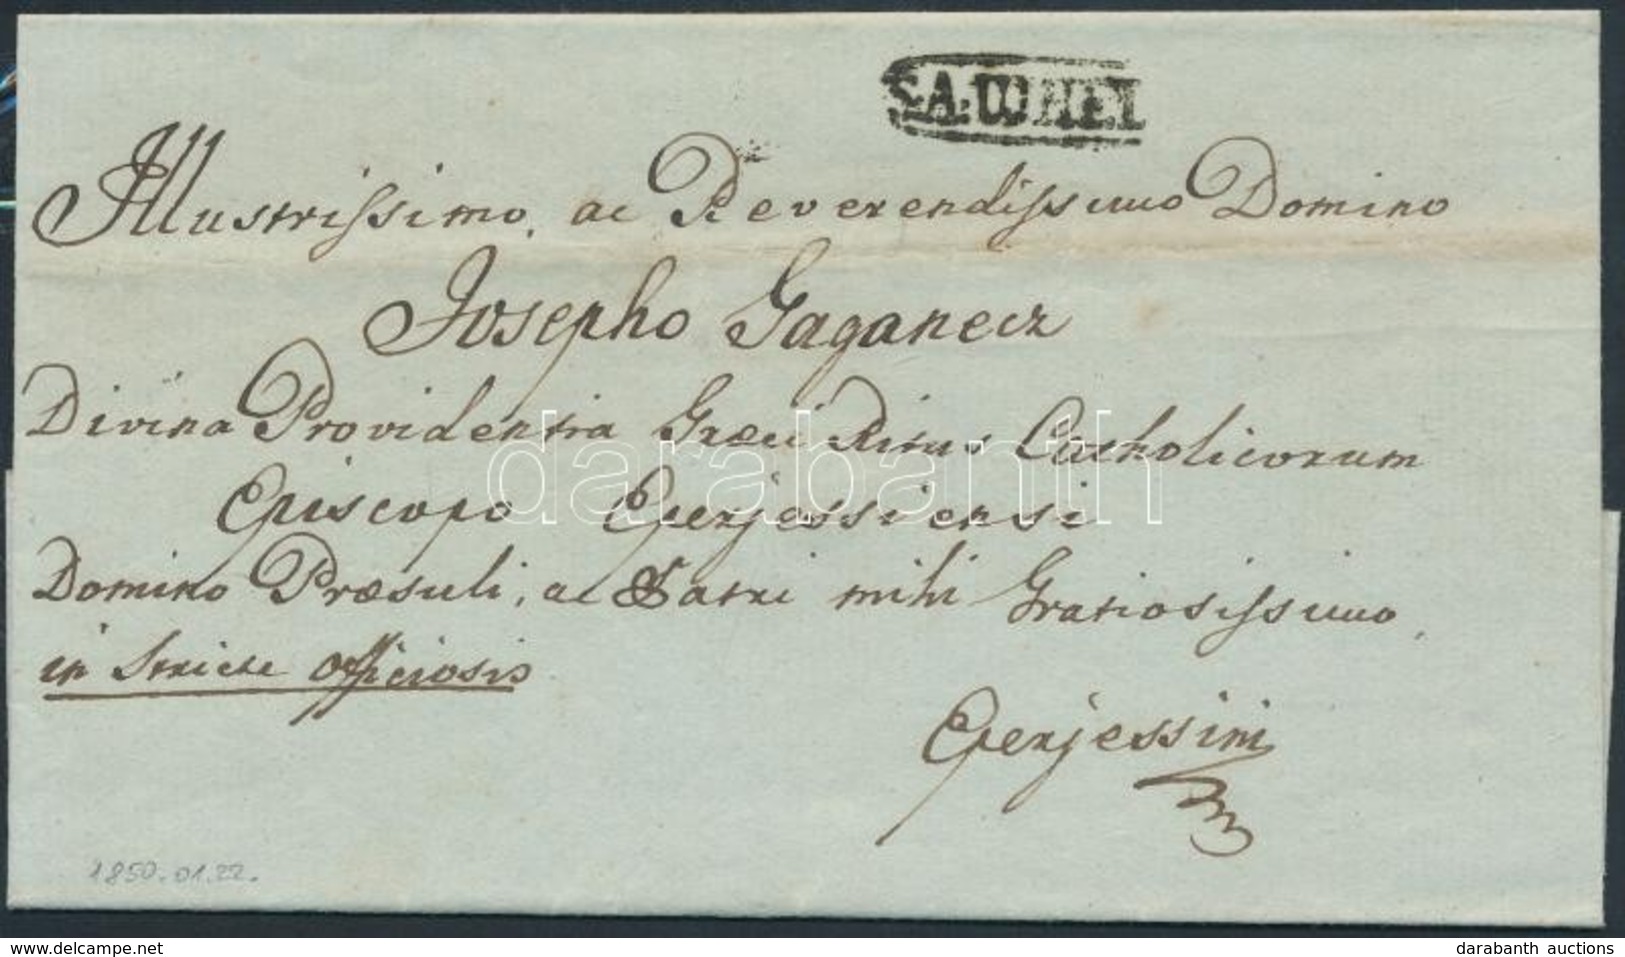 S.A.UJHEL
Illustrissimo, ac Reverendissimo Domino
Josepho Gaganecz
Divina Providentia Græci Ritus Catholicorum
Episcopo Eperjessiensi
Domino Præsuli, ac Patri mihi Gratiosissimo,
in Stricte Officiosis
Eperjessini
1850.01.22.
darabanth
www.delcampe.net
darabanth auctions